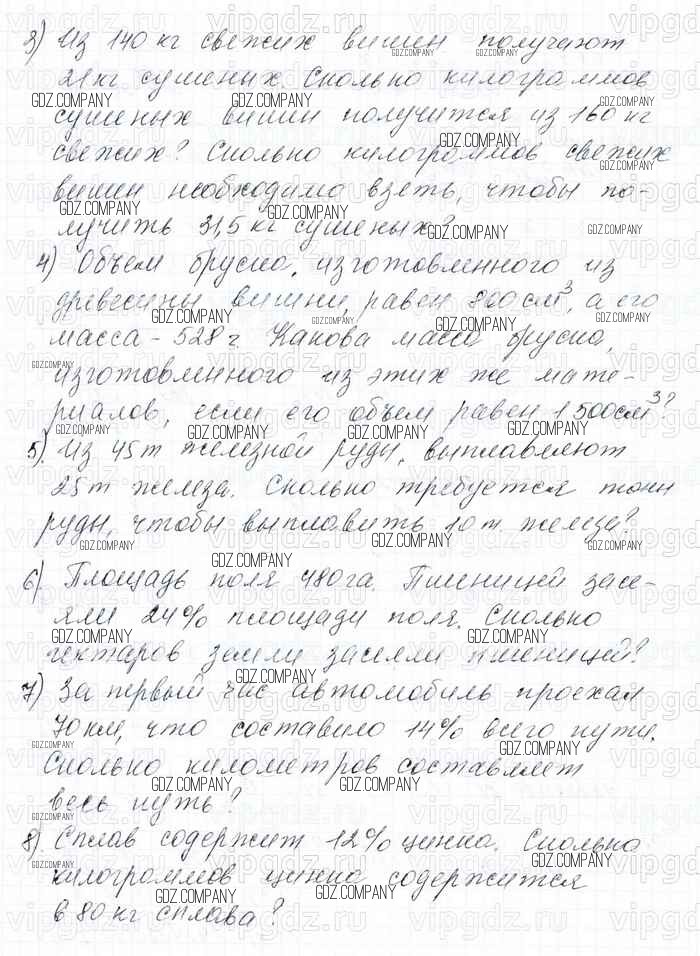 3) Из 140 кг свежих вишен получают
21 кг сушеных. Сколько килограммов
сушеных вишен получится из 160 кг
свежих? Сколько килограммов свежих
вишен необходимо взять, чтобы по-
лучить 31,5 кг сушеных?
4) Объем бруска, изготовленного из
древесины вишни, равен 800 см³, а его
масса - 528 г. Какова масса бруска,
изготовленного из этих же мате-
риалов, если его объем равен 1500 см³?
5) Из 45 т железной руды, выплавляют
25 т железа. Сколько требуется тонн
руды, чтобы выплавить 10 т железа?
6) Площадь поля 480 га. Пшеницей засе-
яли 24% площади поля. Сколько
гектаров земли засеяли пшеницей?
7) За первый час автомобиль проехал
70 км, что составило 14% всего пути.
Сколько километров составляет
весь путь?
8) Сплав содержит 12% цинка. Сколько
килограммов цинка содержится
в 80 кг сплава?
GDZ.COMPANY
vipgdz.ru